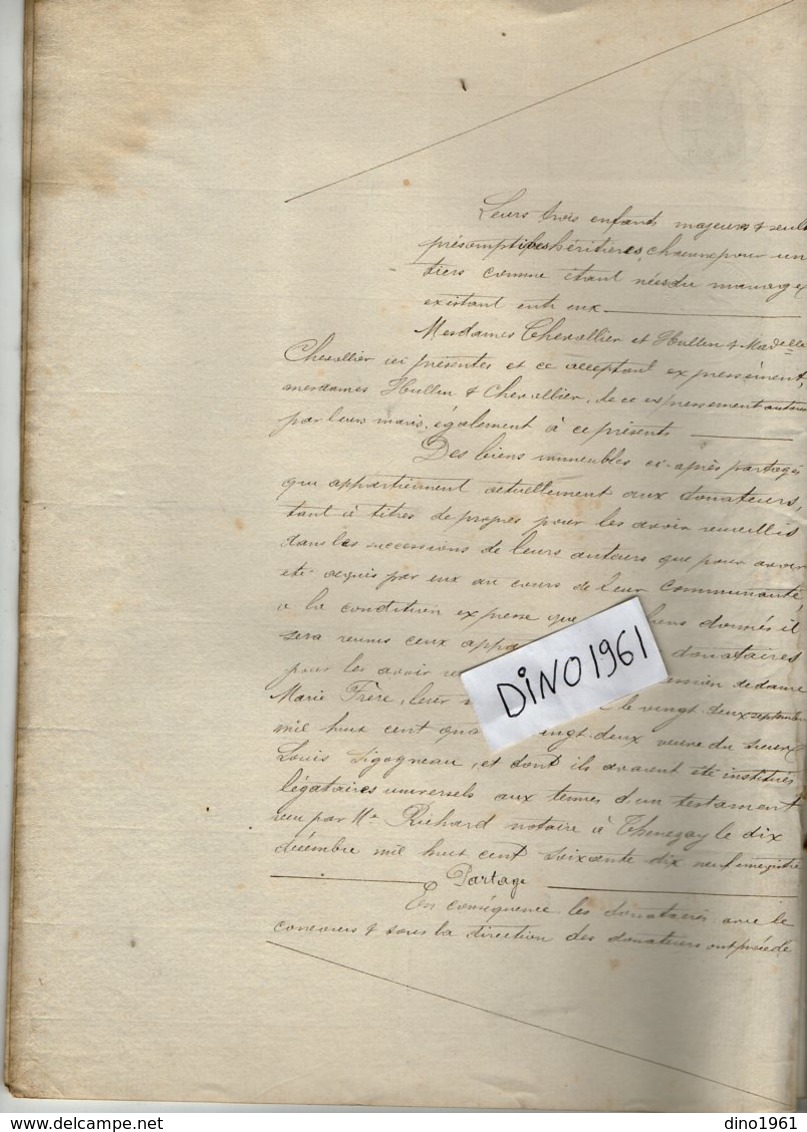 Leurs trois enfants majeurs & seuls
présomptives héritières, chacune pour un
tiers comme étant nées du mariage
existant entre eux
Mesdames Chevallier et Hullin & Madelle
Chevallier ici présentes et ce acceptant expressément,
mesdames Hullin & Chevallier, de ce expressement autori
par leurs maris, également à ce présents
Des biens immeubles ci-après partagés
qui appartiennent actuellement aux donateurs,
tant à titres de propres pour les avoir recueillis
dans les successions de leurs auteurs que pour avoir
été acquis par eux au cours de leur communauté,
a la condition expresse que biens donnés il
sera reunis ceux appa donataires
pour les avoir re ession de dame
Marie Frère, leur le vingt deux septembre
mil huit cent qua ingt deux veuve du sieur
Louis Sigogneau, et dont ils avaient été institués
légataires universels aux termes d'un testament
reçu par Me Richard notaire à Thenezay le dix
décembre mil huit cent soixante dix neuf enregistré
Partage
En conséquence les donataires avec le
concours & sous la direction des donateurs ont procédé
DINO1961
delcampe.net
dino1961